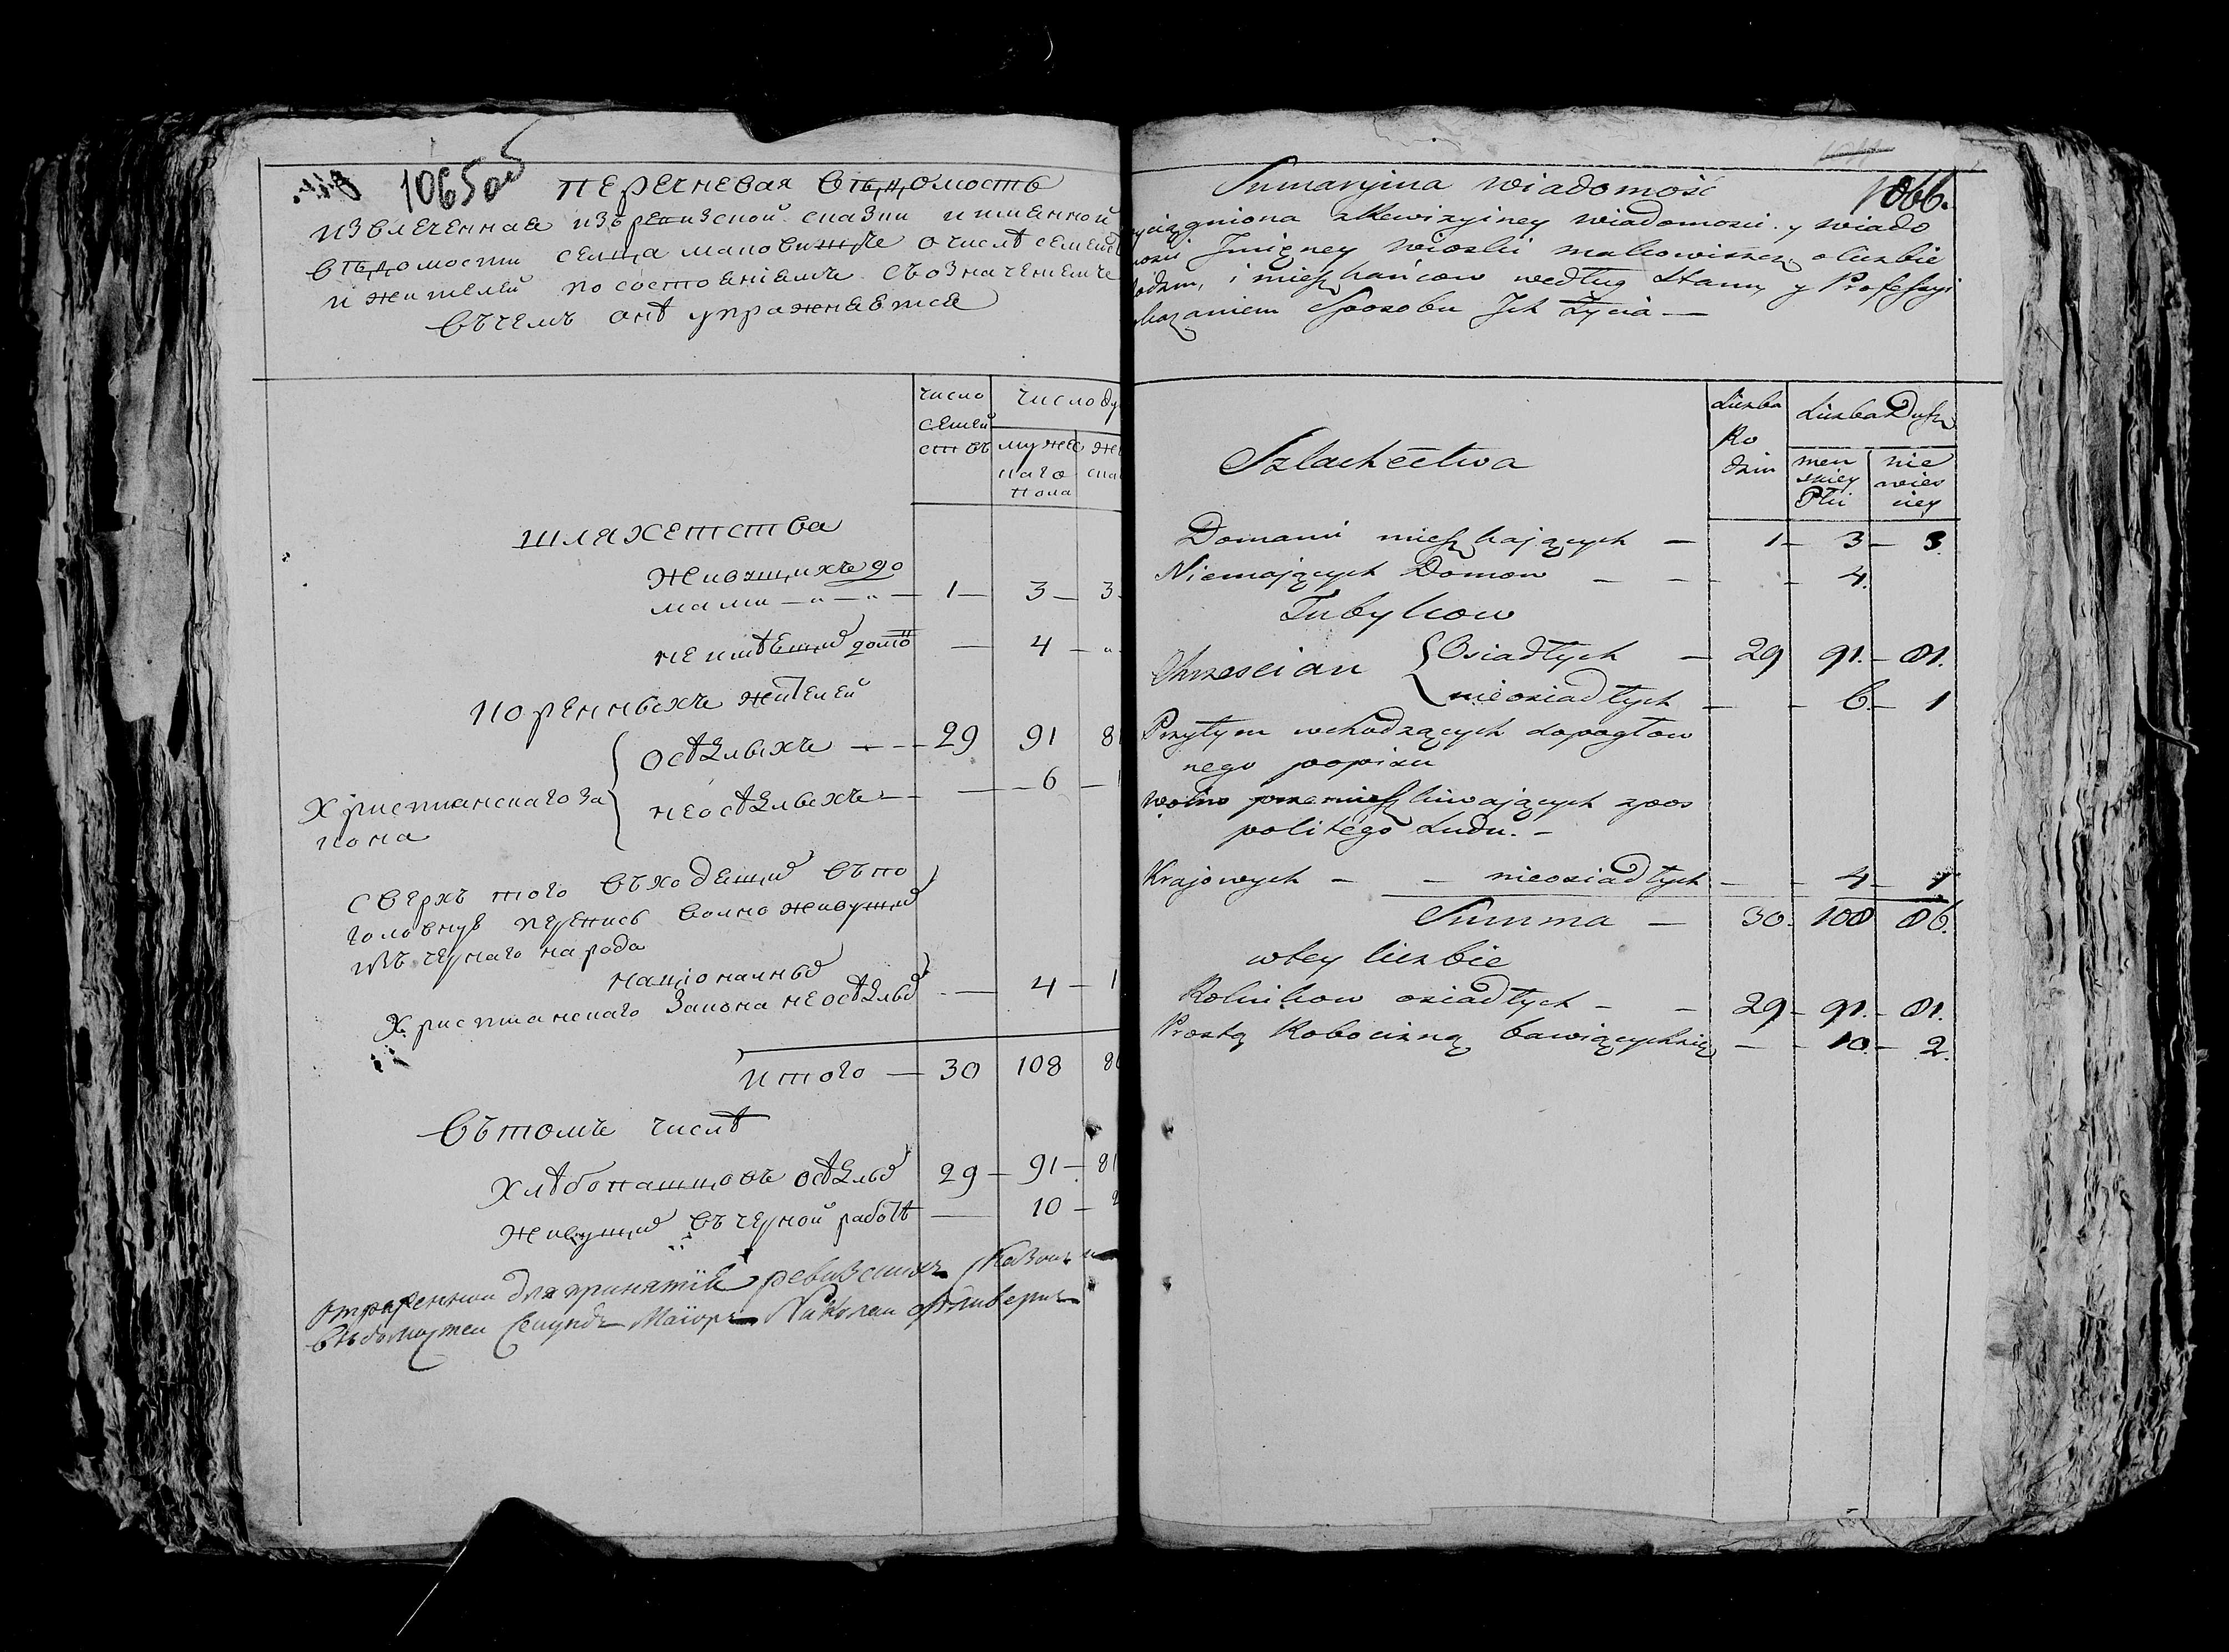 1065 об
перечневая вѣдомость
извлеченная изъ ревизской сказки и имянной
вѣдомости селца маковищъ о числѣ семей
и жителей по состоянiямъ съ означенiемъ
въ чемъ онѣ упражнявтся
число
семей
ствъ
число ду
мужес
каго
пола
же
ска
шляхетства
Живущихъ до
мами — " — " — 1 — 3 — 3
не имѣвщие домо — 4 — "
коренныхъ жителей
Християнскаго за
кона
осѣдлыхъ — — 29 91 8
неосѣдлыхъ — — 6 — 1
сверхъ того въходящие въ по
головнув перепись волно живущие
изъ чернаго народа
нацiоналные
Християнскаго закона неосѣдлые — 4 — 1
итого — 30 108 86
Въ томъ числѣ
хлѣбопашцовъ осѣдлые 29 — 91 — 81
живущие въ черной работѣ — 10 — 2
отряженной для принятiя ревизскихъ сказокъ и
вѣдомостей Секундъ Маiоръ Николай
1066.
Sumaryina wiadomość
z Rewizyiney wiadomosci y wiado
mosci Jmięney wioski makowiszcz o liczbie
i mieszkańcow według Stanu y Professyi
Sposobu Jch Życia —
Liczba
Ro
dzin
Liczba Dusz
men
skiey
Płci
nie
wies
ciey
Szlachectwa
Domami mieszkaiących — 1 — 3 — 3
Niemaiących Domow — — — — 4.
Tubylcow
Chrzescian
Osiadłych — 29 91. — 81.
nieosiadłych — — 6 — 1
Przytym wchodzących do pogłow
nego popisu
Wolno przemieszkiwaiących z pos
politego Ludu. —
Krajowych — — nieosiadłych — — 4 — 1
Summa — 30. 108 86.
w tey liczbie
Rolnikow osiadłych — — 29 — 91. — 81.
Prostą Robocizną bawiących się — — 10. — 2.